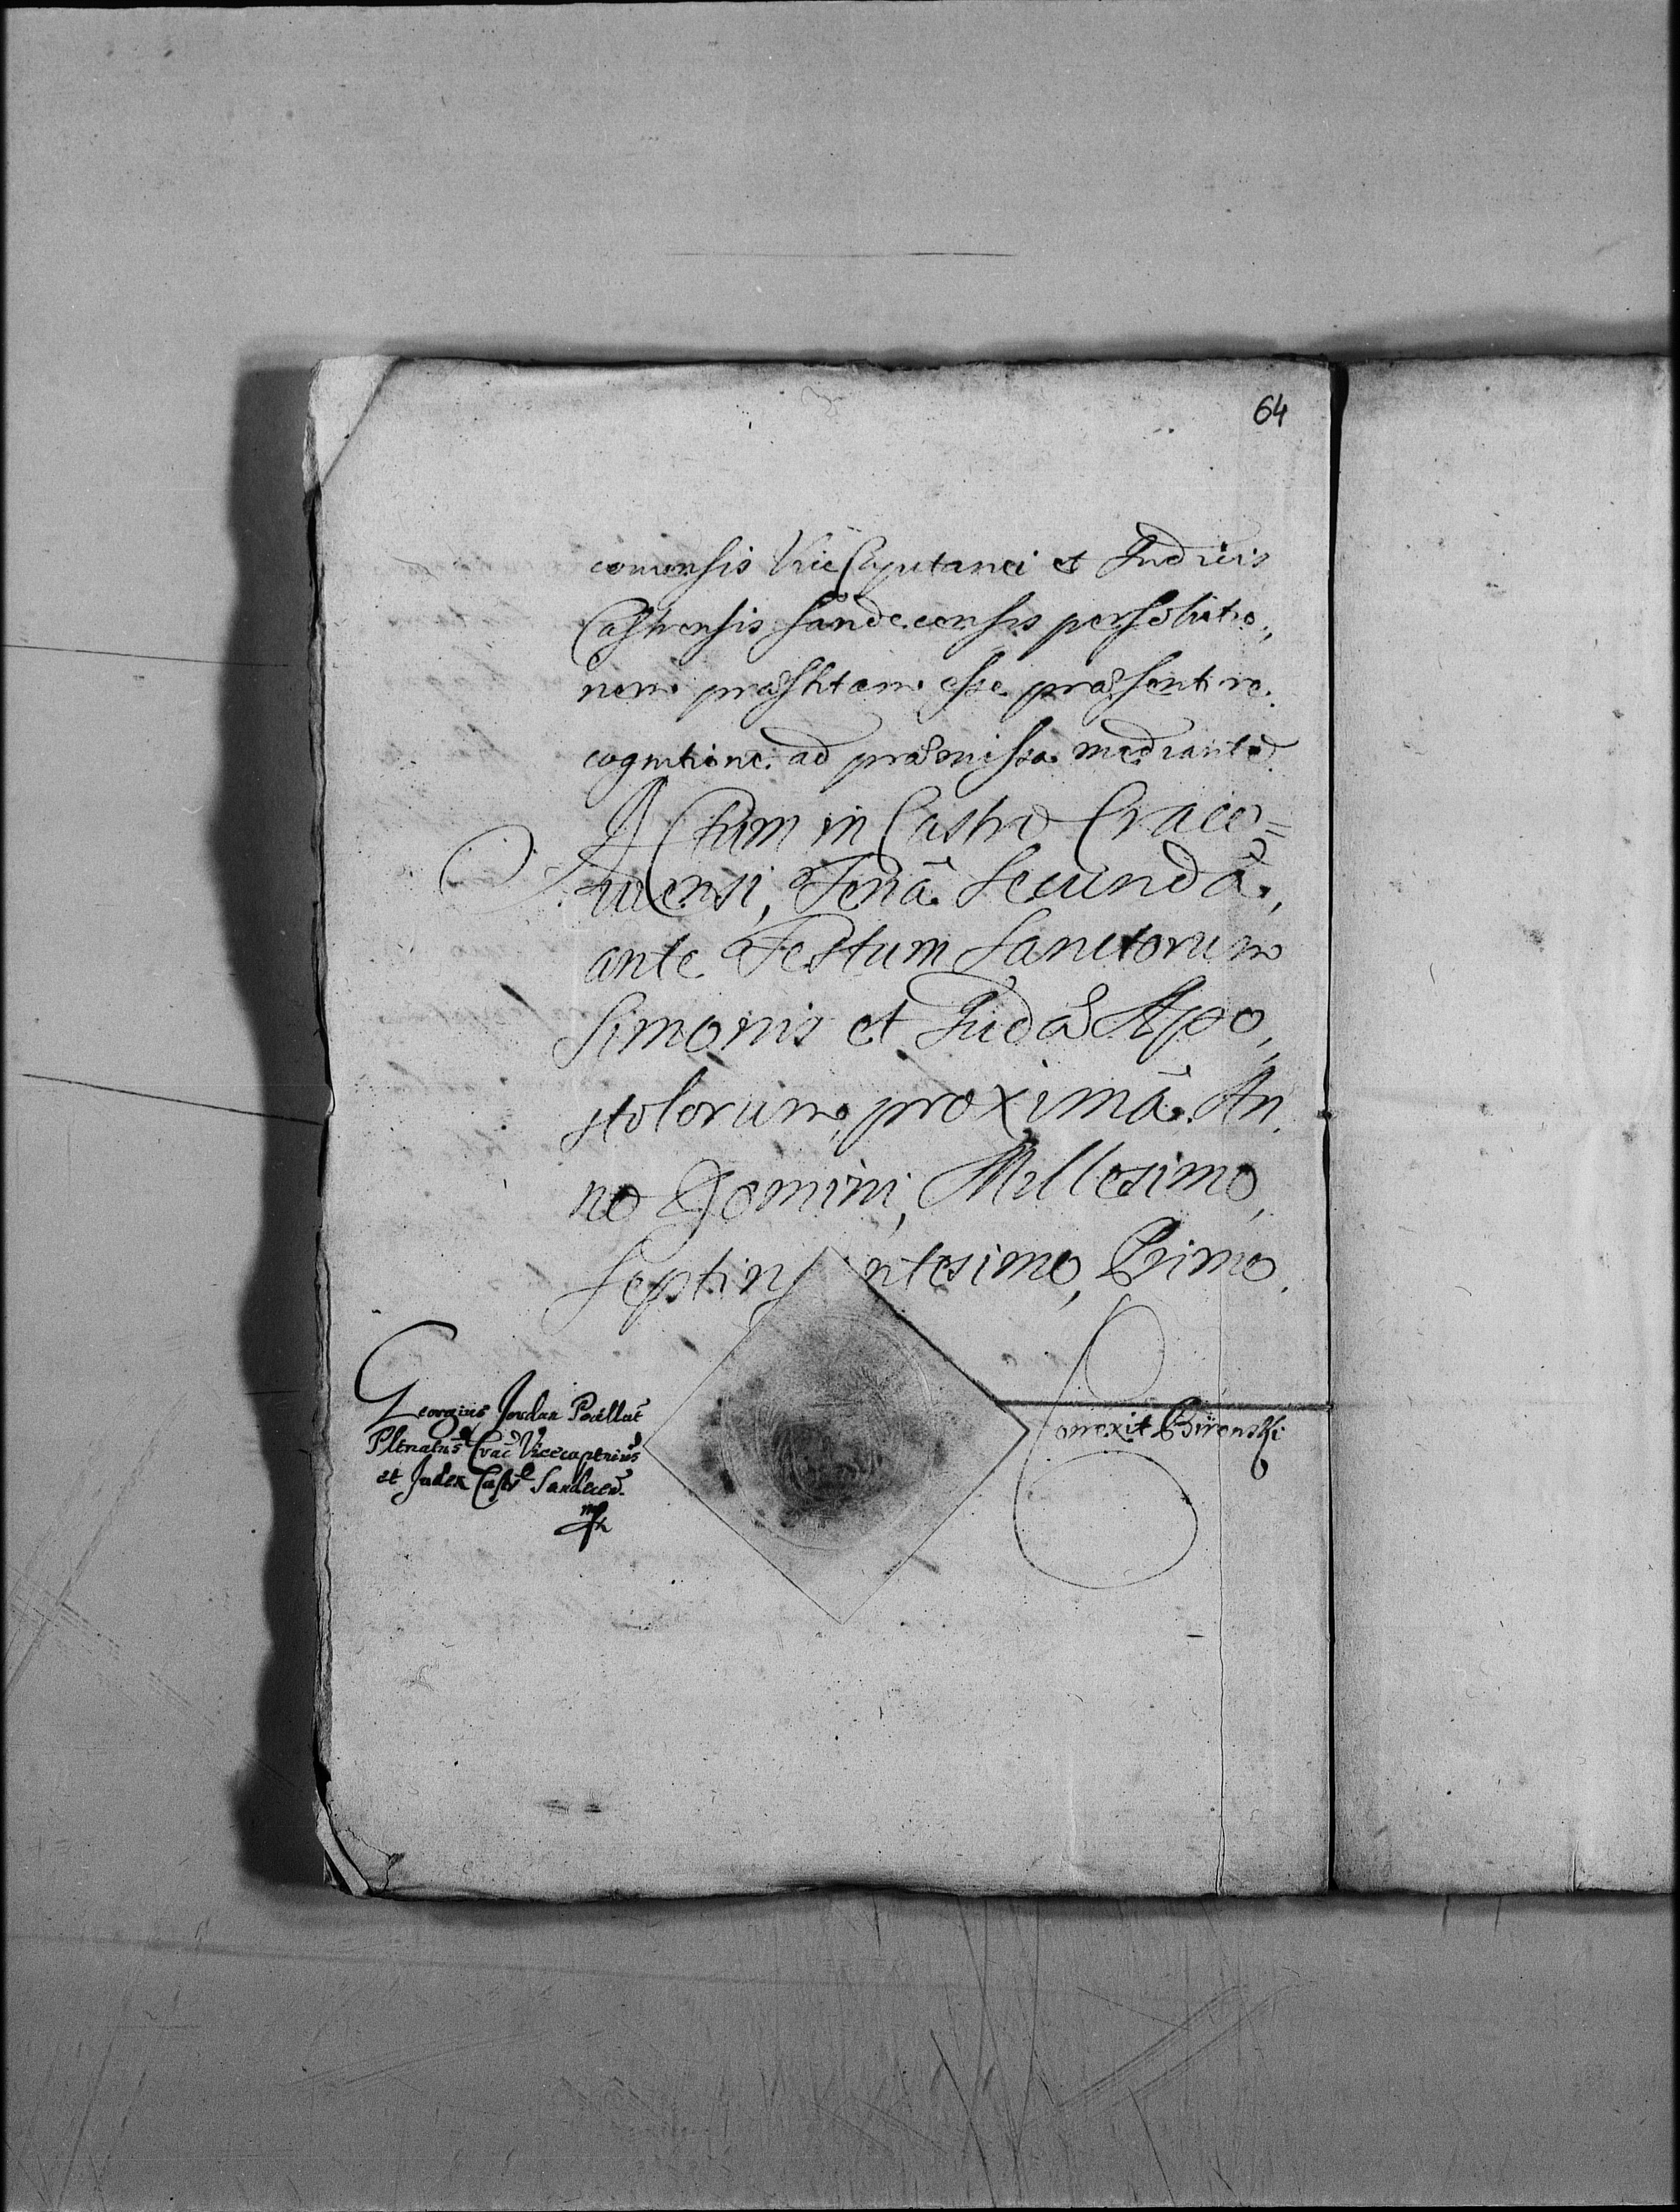 64
coviensis Vice Capitanei et Judicis
Castrensis Sandecensis persolutio„
nem præstitam esse præsenti re„
cognitione ad præmissa mediante.
Actum in Castro Craco=
viensi, Feriâ Secundâ,
ante Festum Sanctorum
Simonis et Judæ Apo„
stolorum, proximâ. An„
no Domini, Millesimo,
Septin ntesimo, Primo.
Georgius Jordan Pocillat
Plenatus Crac Vicecaptneus
et Judex Castr Sandecen.
mp
Correxit Birenski